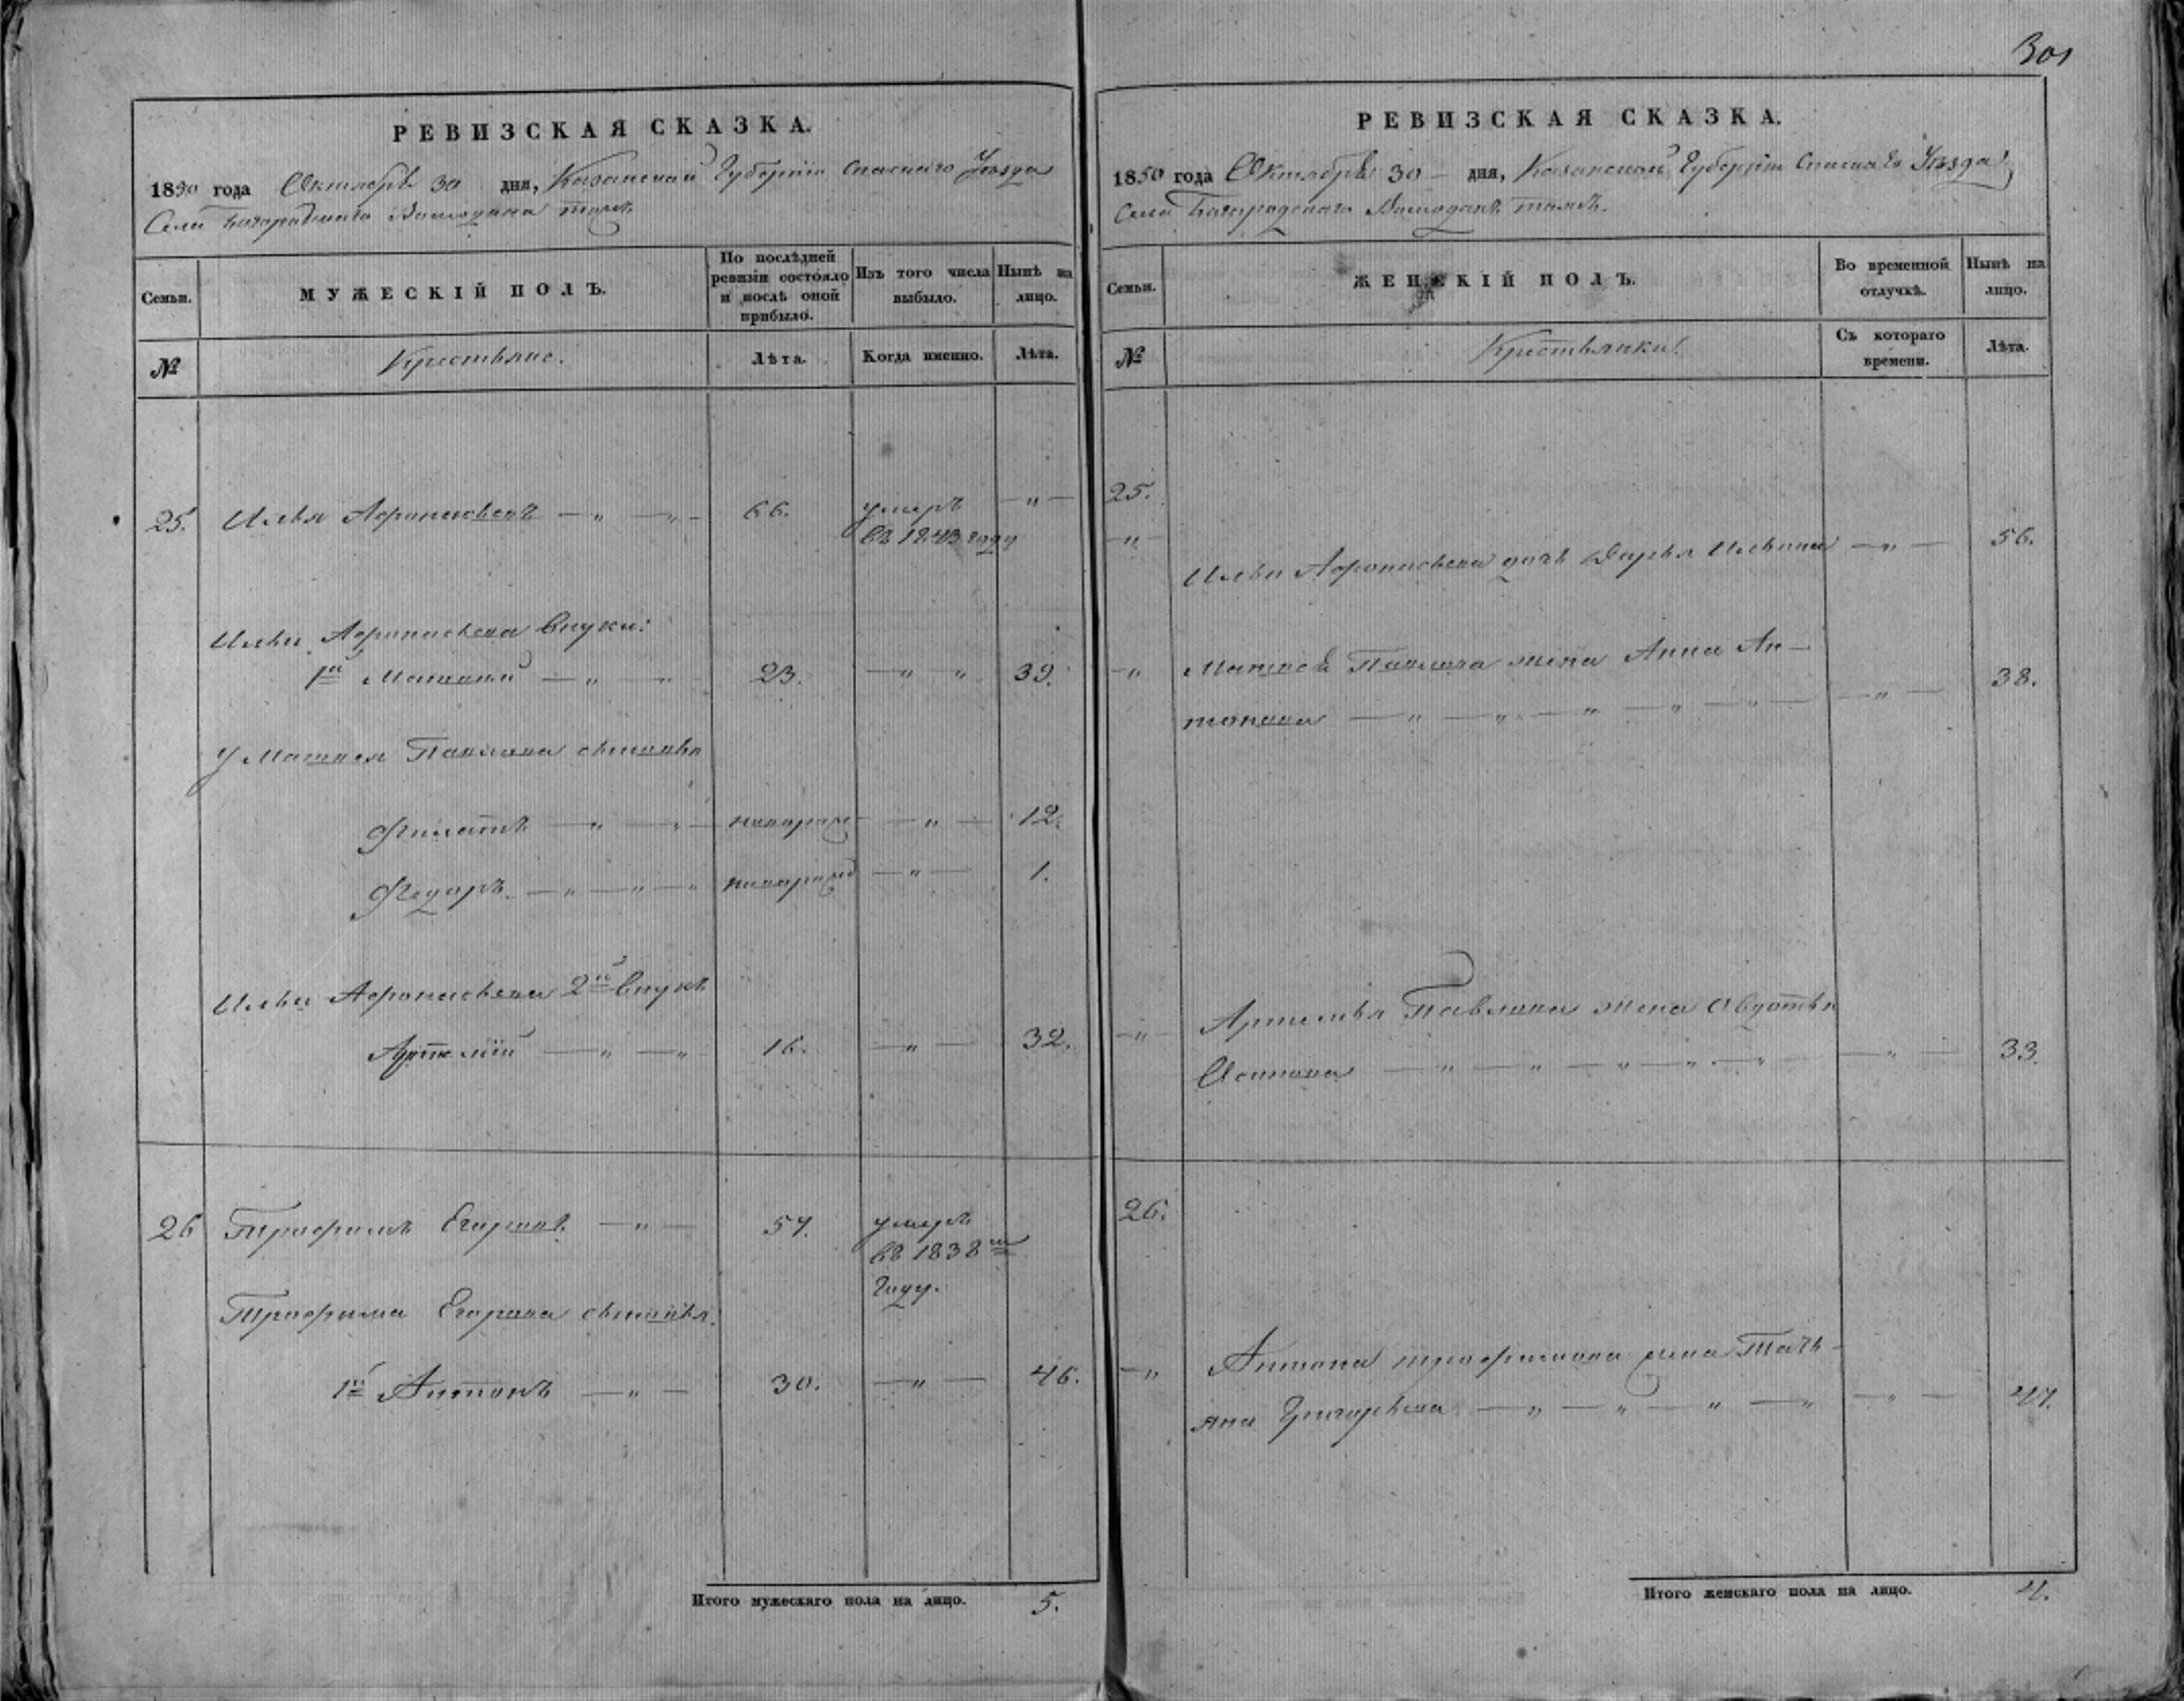 301
РЕВИЗСКАЯ СКАЗКА.
1850 года Октября 30 дня, Казанской Губерніи Спаскаго Уѣзда
Села Богородскаго тожъ
Семьи.
МУЖЕСКІЙ ПОЛЪ.
По послѣдней ревизіи состояло и послѣ оной прибыло.
Изъ того числа выбыло.
Нынѣ на лицо.
№
Крестьяне.
Лѣта.
Когда именно.
Лѣта.
25. Илья Афонасьевъ — „ — „ — 66. умеръ — „ —
въ 1843 году
Ильи Афонасьева внуки:
1й Матвей — „ — „ 23. — „ „ 39.
У Матвея Павлова сыновья
Филатъ — „ — „ — новорож — „ — 12.
Федоръ. — „ — „ — „ новорожд — „ — 1.
Ильи Афонасьева 2й внукъ
Артемій — „ — „ 16. — „ — 32.
26 Трофимъ Егоровъ — „ — 57. умеръ
въ 1838м
году.
Трофима Егорова сыновья.
1й Антонъ — „ — 30. — „ — 46.
Итого мужескаго пола на лицо. 5.
РЕВИЗСКАЯ СКАЗКА.
1850 года Октября 30 — дня, Казанской Губерніи Спаскаго Уѣзда
Села Богородскаго тожъ.
Семьи.
ЖЕНСКІЙ ПОЛЪ.
Во временной отлучкѣ.
Нынѣ на лицо.
№
Крестьянки.
Съ котораго времени.
Лѣта.
25.
— „ — Ильи Афонасьева дочь Дарья Ильина — „ — 56.
— „ Матвея Павлова жена Анна Ан-
тонова — „ — „ — „ — „ — „ — — „ — 38.
— „ — Артемья Павлова жена Авдотья
Осипова — „ — „ — „ — „ — „ — „ — 33.
26.
— „ Антона Трофимова жена Тать-
яна Григорьева — „ — „ — „ — „ — „ — 47.
Итого женскаго пола на лицо. 4.